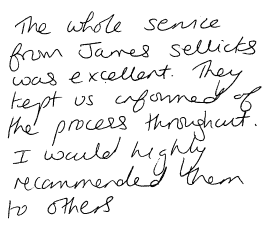 The whole service
from James Sellicks
was excellent. They
kept us informed of
the process throughout.
I would highly
recommended them
to others